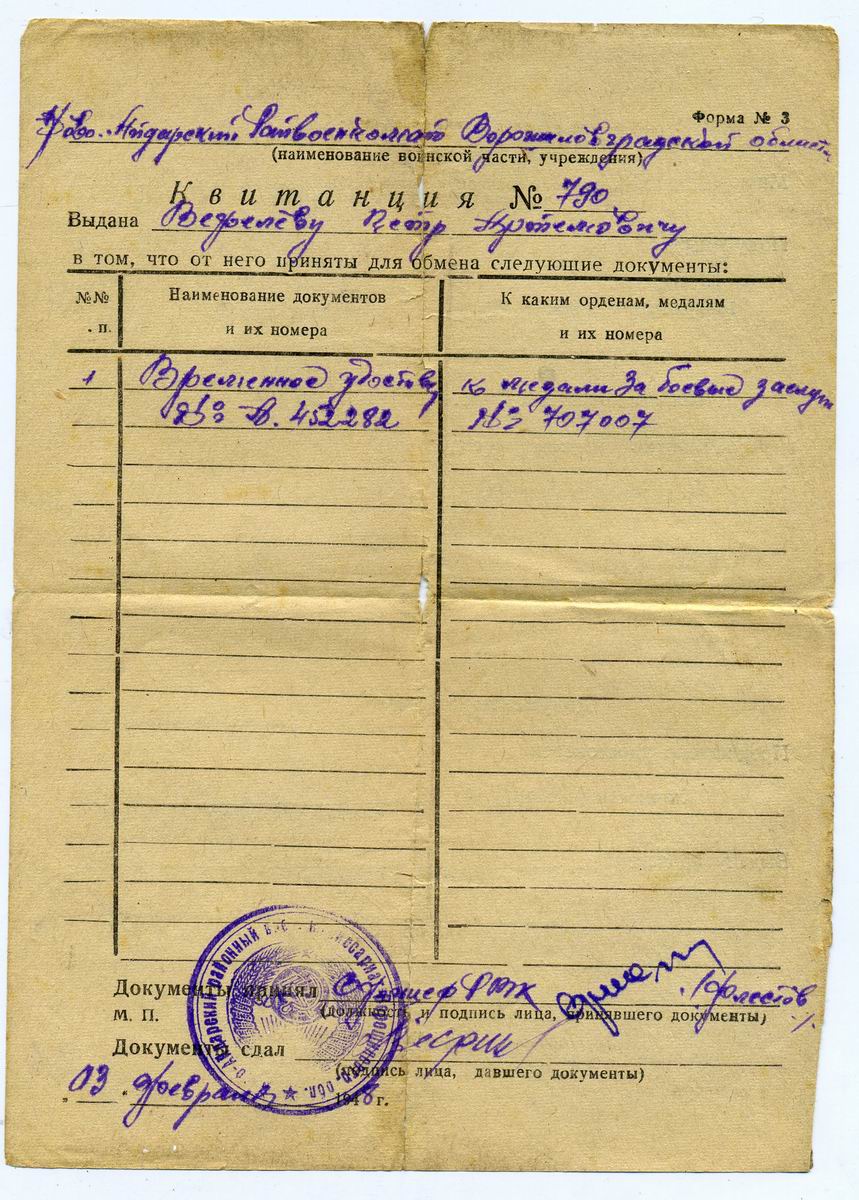 Форма № 3
Ново-Айдарский Райвоенкомат Ворошиловградской области
(наименование воинской части, учреждения)
Квитанция № 790
Выдана Петр Артемовичу
в том, что от него приняты для обмена следующие документы:
№№ Наименование документов К каким орденам, медалям
. п. и их номера и их номера
1 Временное удостов к медали За боевые заслуги
№ А. 452282 № 707007
Документы принял
М. П. (должность и подпись лица, принявшего документы)
Документы сдал
(подпись лица, давшего документы)
„03 февраля 1948 г.
районный комиссариат обл.